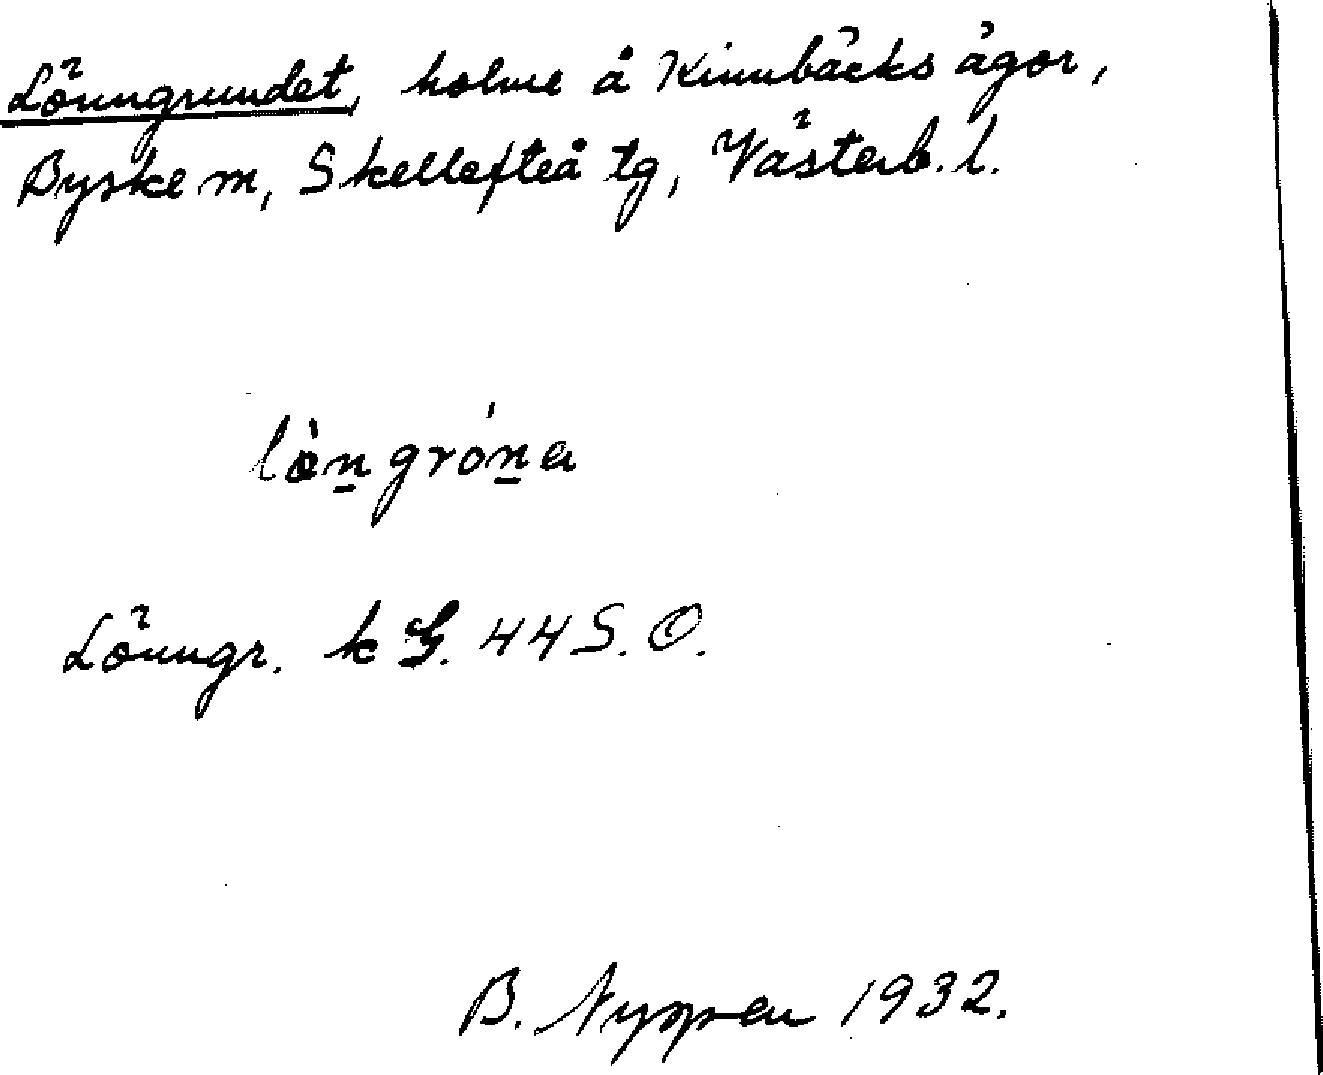 Lönngrundet, holme å Kinnbäcks ägor,
Byske m, Skellefteå tg, Västerb. l.
lö̀n̲grón̲a
Lönngr. k G. 44 S. O.
B. Nyman 1932.